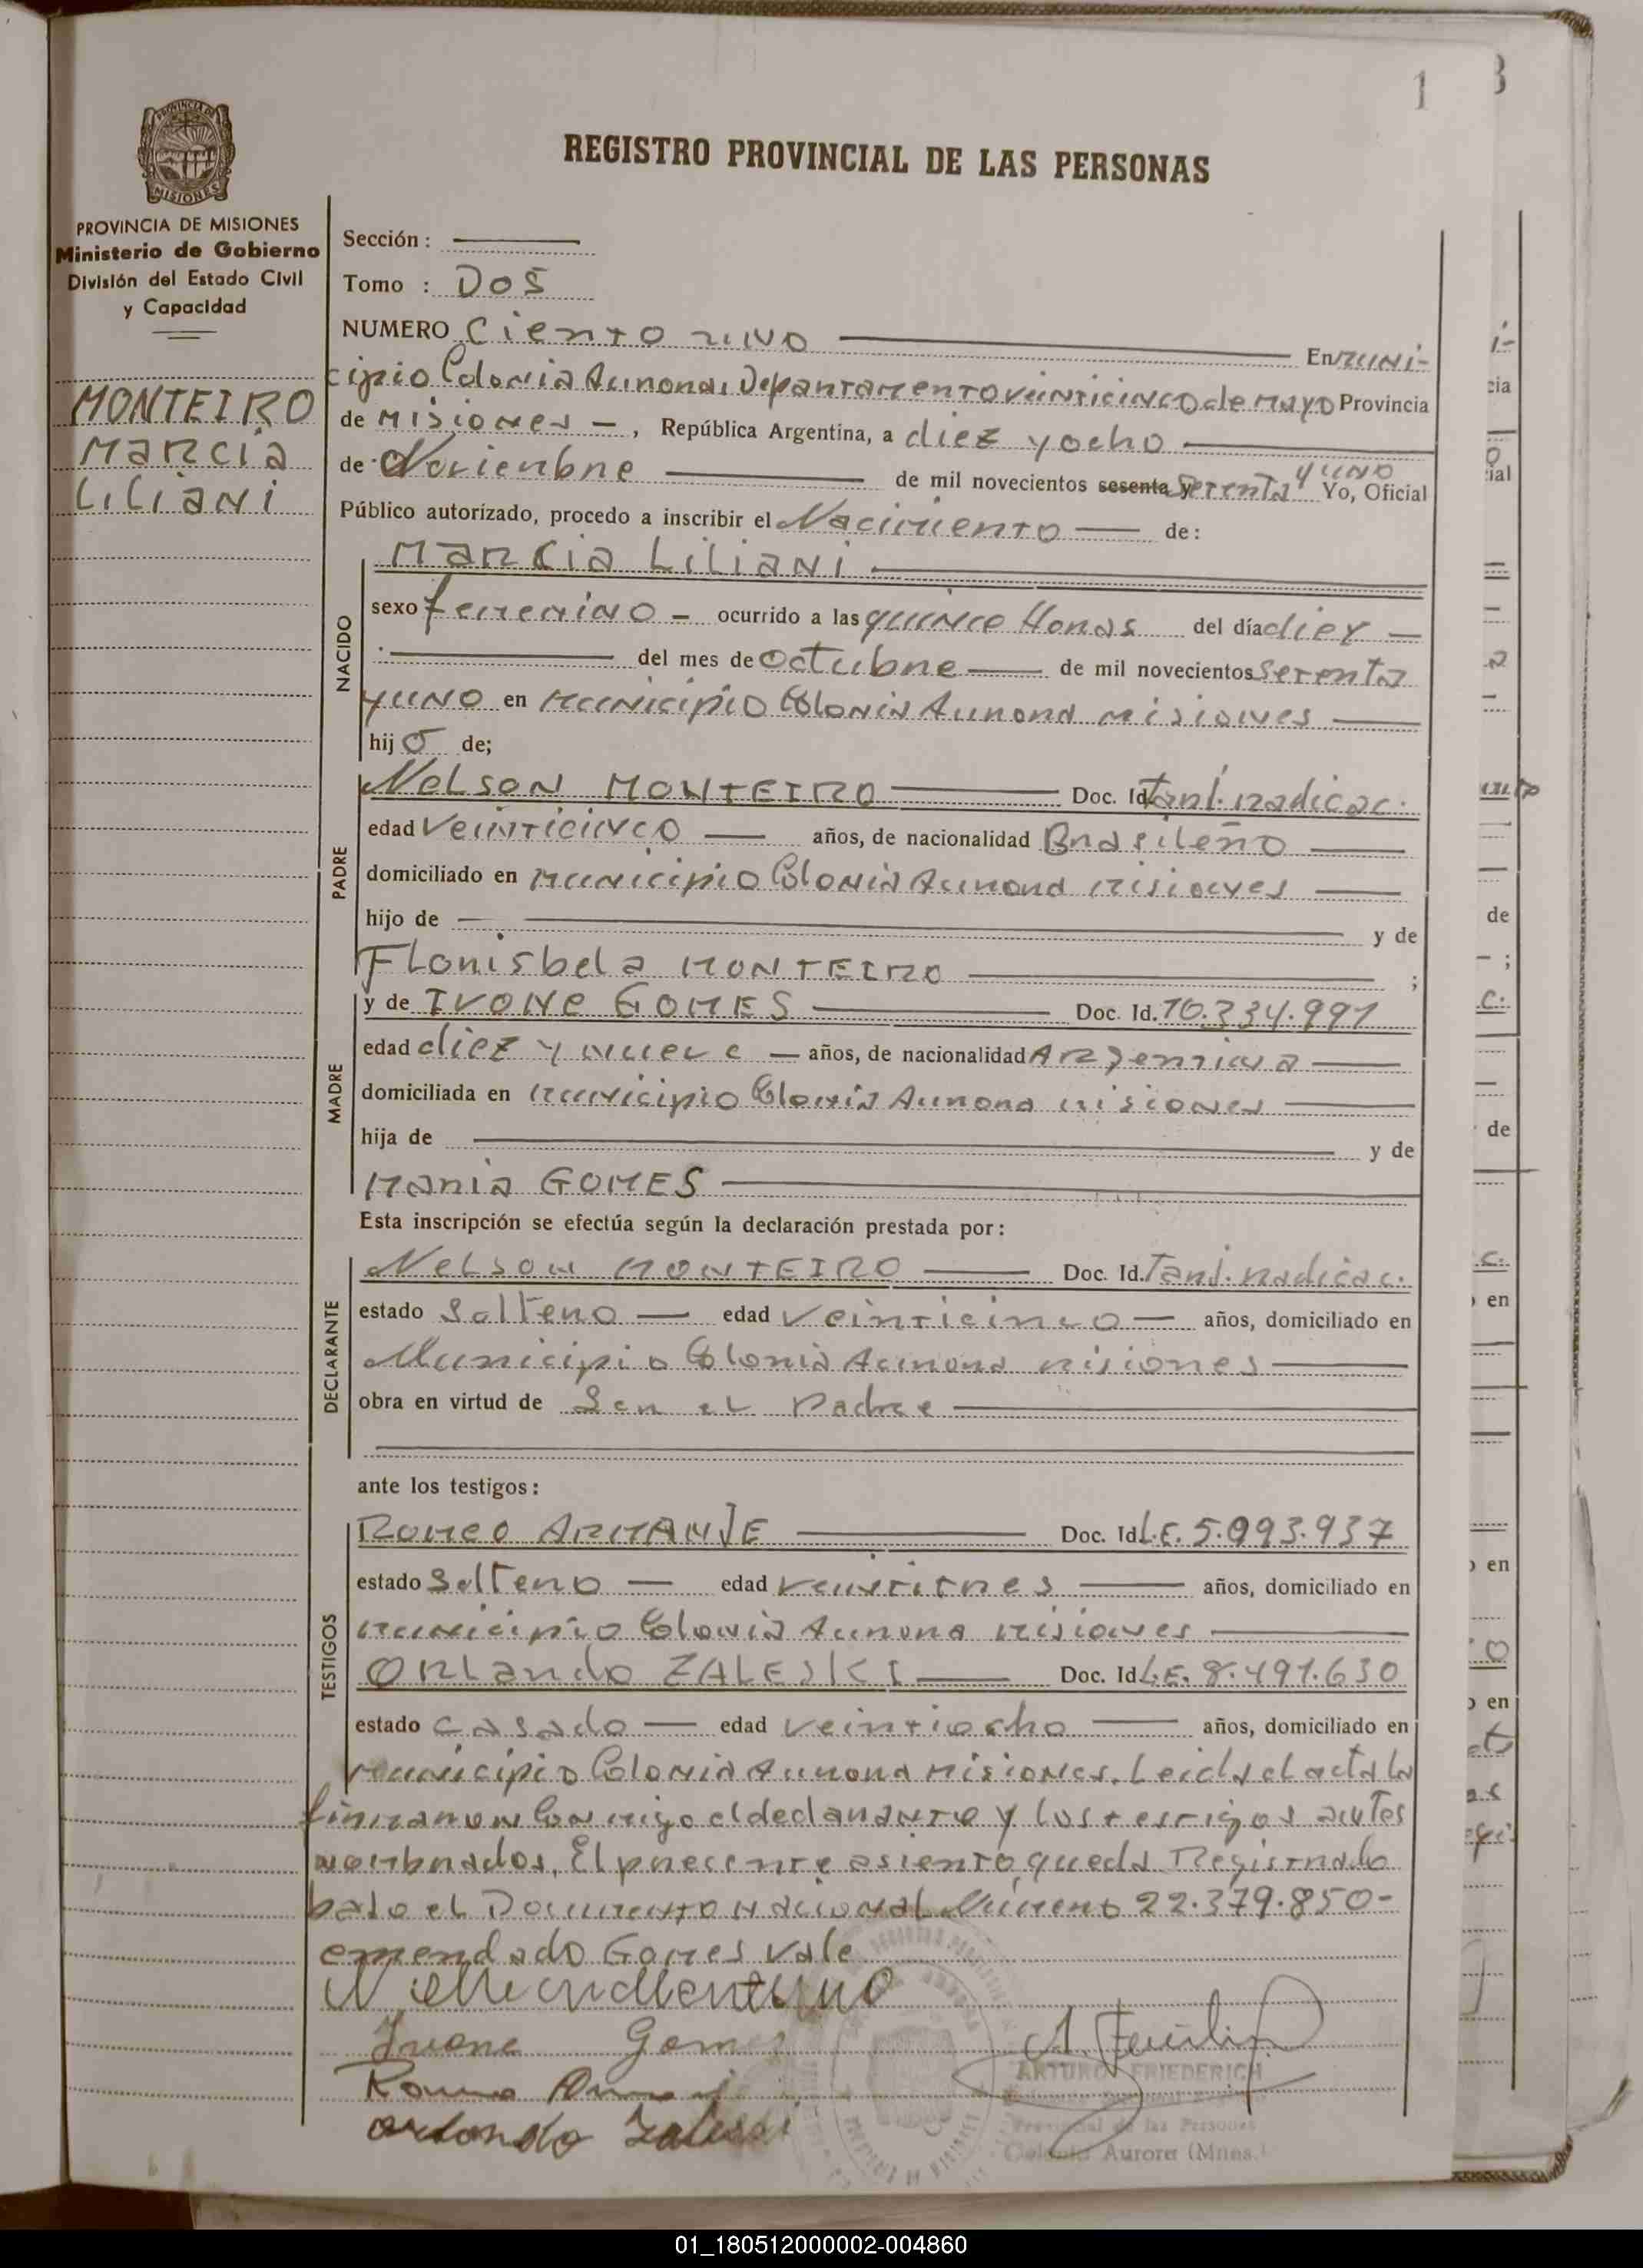 1
3
REGISTRO PROVINCIAL DE LAS PERSONAS
PROVINCIA DE MISIONES
Ministerio de Gobierno
División del Estado Civil
y Capacidad
MONTEIRO
Marcia
Liliani
Sección:
Tomo : Dos
NUMERO Ciento uno En Muni-
cipio Colonia Aurora, Departamento veinticinco de Mayo Provincia
de Misiones - , República Argentina, a diez y ocho
de Noviembre de mil novecientos sesenta y setenta y uno Yo, Oficial
Público autorizado, procedo a inscribir el Nacimiento de:
NACIDO
Marcia Liliani
sexo femenino - ocurrido a las quince Horas del día diez
del mes de Octubre de mil novecientos setenta
y uno en Municipio Colonia Aurora Misiones
hij o de;
PADRE
Nelson MONTEIRO Doc. Id. Tarj. radicac.
edad Veinticinco años, de nacionalidad Brasileño
domiciliado en Municipio Colonia Aurora Misiones
hijo de y de
Florisbela MONTEIRO ;
MADRE
y de Ivone GOMES Doc. Id. 10.334.991
edad diez y nueve años, de nacionalidad Argentina
domiciliada en Municipio Colonia Aurora Misiones
hija de y de
Maria GOMES
Esta inscripción se efectúa según la declaración prestada por:
DECLARANTE
Nelson MONTEIRO Doc. Id. Tarj. radicac.
estado Soltero edad Veinticinco años, domiciliado en
Municipio Colonia Aurora Misiones
obra en virtud de Ser el Padre
ante los testigos:
TESTIGOS
Romeo ARMANJE Doc. Id L.E. 5.093.937
estado Soltero edad Veintitres años, domiciliado en
Municipio Colonia Aurora Misiones
Orlando ZALESKI Doc. Id L.E. 8.491.630
estado Casado edad Veintiocho años, domiciliado en
Municipio Colonia Aurora Misiones. Leida el acta la
firmaron Conmigo el declarante y los testigos antes
nombrados. El precente asiento queda Registrado
bajo el Documento Nacional Número 22.379.850-
emendado Gomes vale
Ivone Gomes
Orlando Zaleski
ARTURO FRIEDERICH
Provincial de las Personas
Colonia Aurora (Mnes.)
01_180512000002-004860